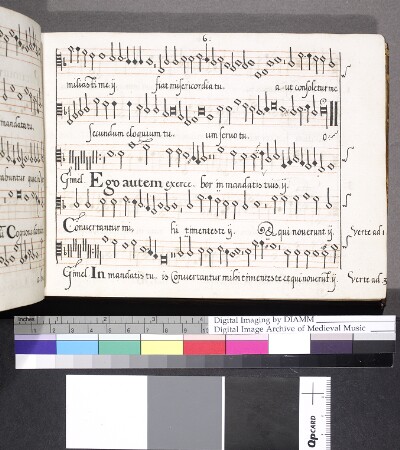 6.
miliasti me ij. fiat misericordia tu. a ut consoletur me
secundum eloquium tu. um servo tu. o.
mandata tu.
Gimel Ego autem exerce. bor in mandatis tuis. ij.
Convertantur mi, hi timentes te ij. Et qui noverunt ij. Verte ad
Gimel In mandatis tu. is Convertantur mihi timentes te et qui noverut ij. Verte ad. 3
inches 1 2 3 4
Digital Imaging by DIAMM
Digital Image Archive of Medieval Music
QPCARD